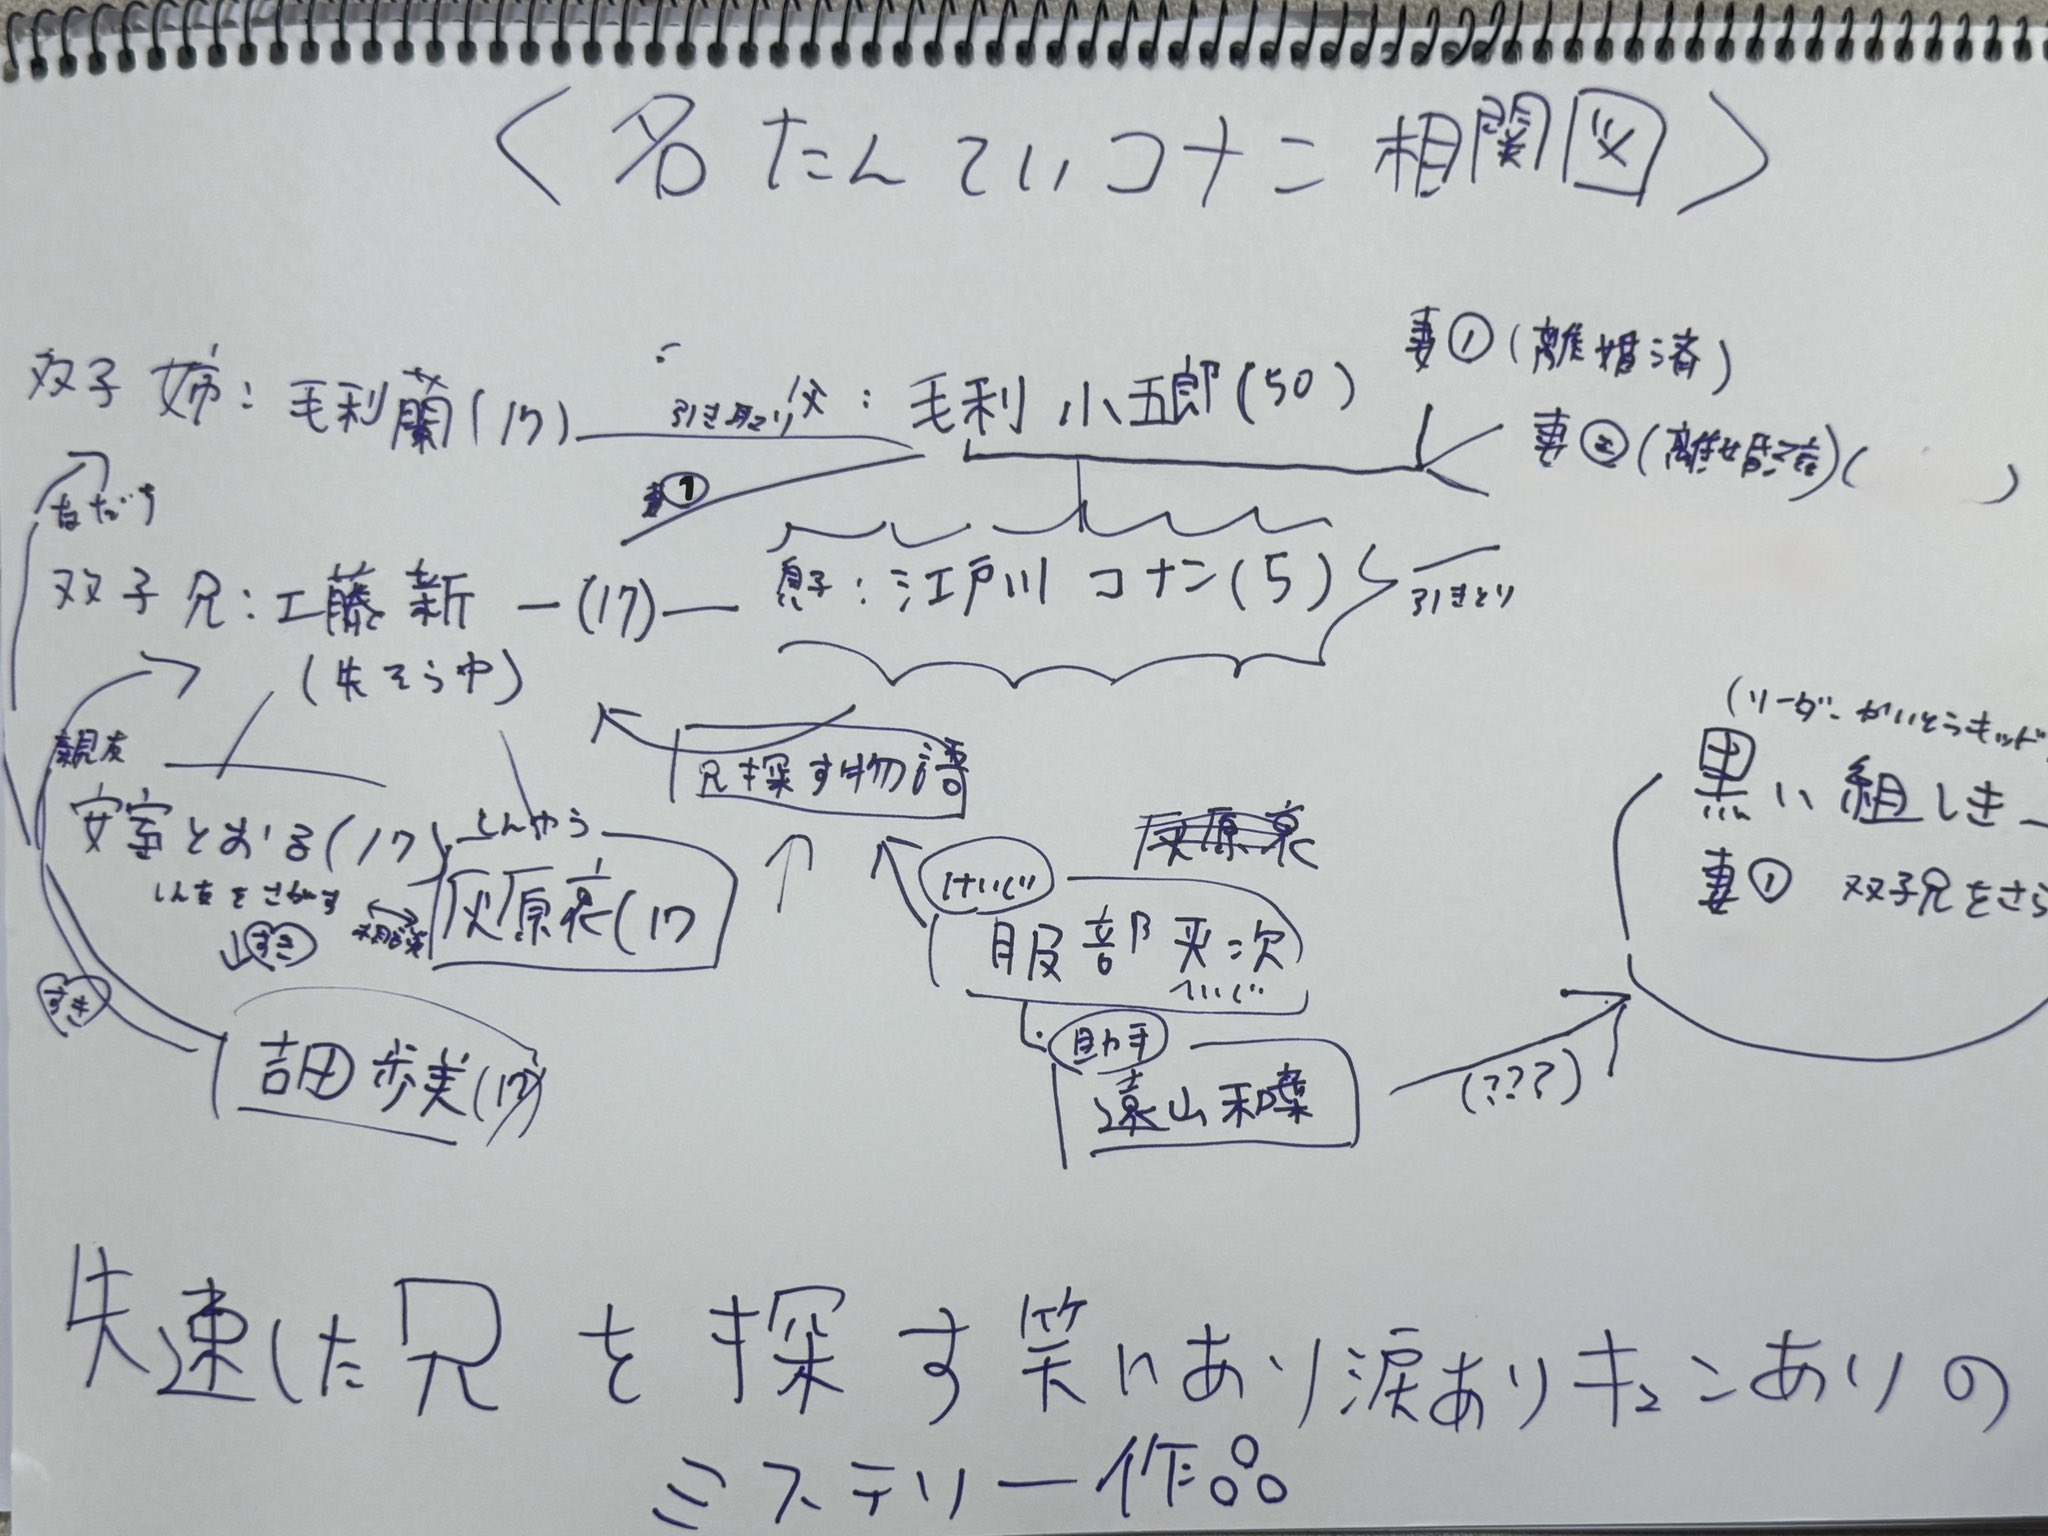 <名たんていコナン 相関図>
妻①(離婚済)
双子 姉:毛利蘭(17) 引き取り 父:毛利 小五郎(50)
妻②(離婚済)( )
妻①
友だち
双子 兄:工藤 新一(17) 息子:江戸川 コナン(5) 引きとり
(失そう中)
(リーダーかいとうキッド
親友
兄探す物語
黒い組しき
安室とおる(17) こんやく
灰原哀
けいじ
妻① 双子兄をさら
しん友をさがす
灰原哀(17
すき
服部 平次
へいじ
すき
助手
吉田 歩美(17)
遠山和葉
(???)
失速した兄を探す笑いあり涙ありキュンありの
ミステリー作品。。。